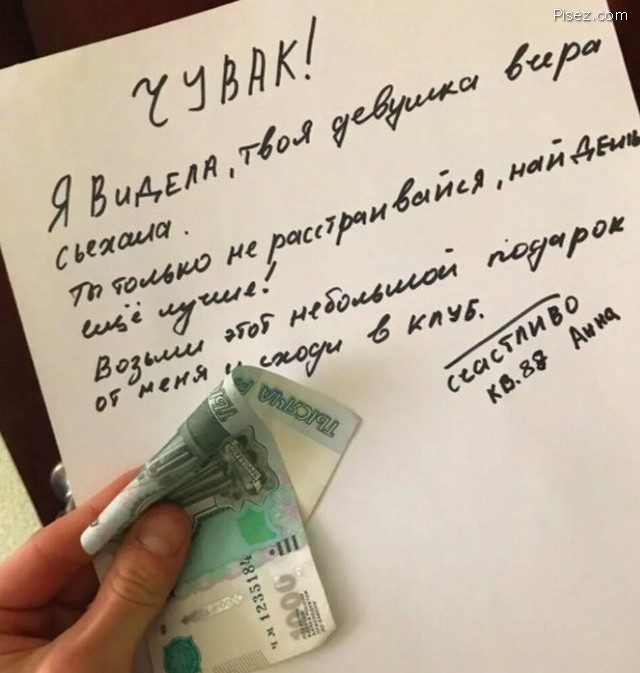 Pisez.com
ЧУВАК!
Я ВИДЕЛА, твоя девушка вчера
съехала.
Ты только не расстраивайся, найдешь
ещё лучше!
Возьми этот небольшой подарок
от меня и сходи в клуб.
счастливо
кв. 88 Анна
ТЫСЯЧА Р
ТЫ
ЧИ 1235184
1000